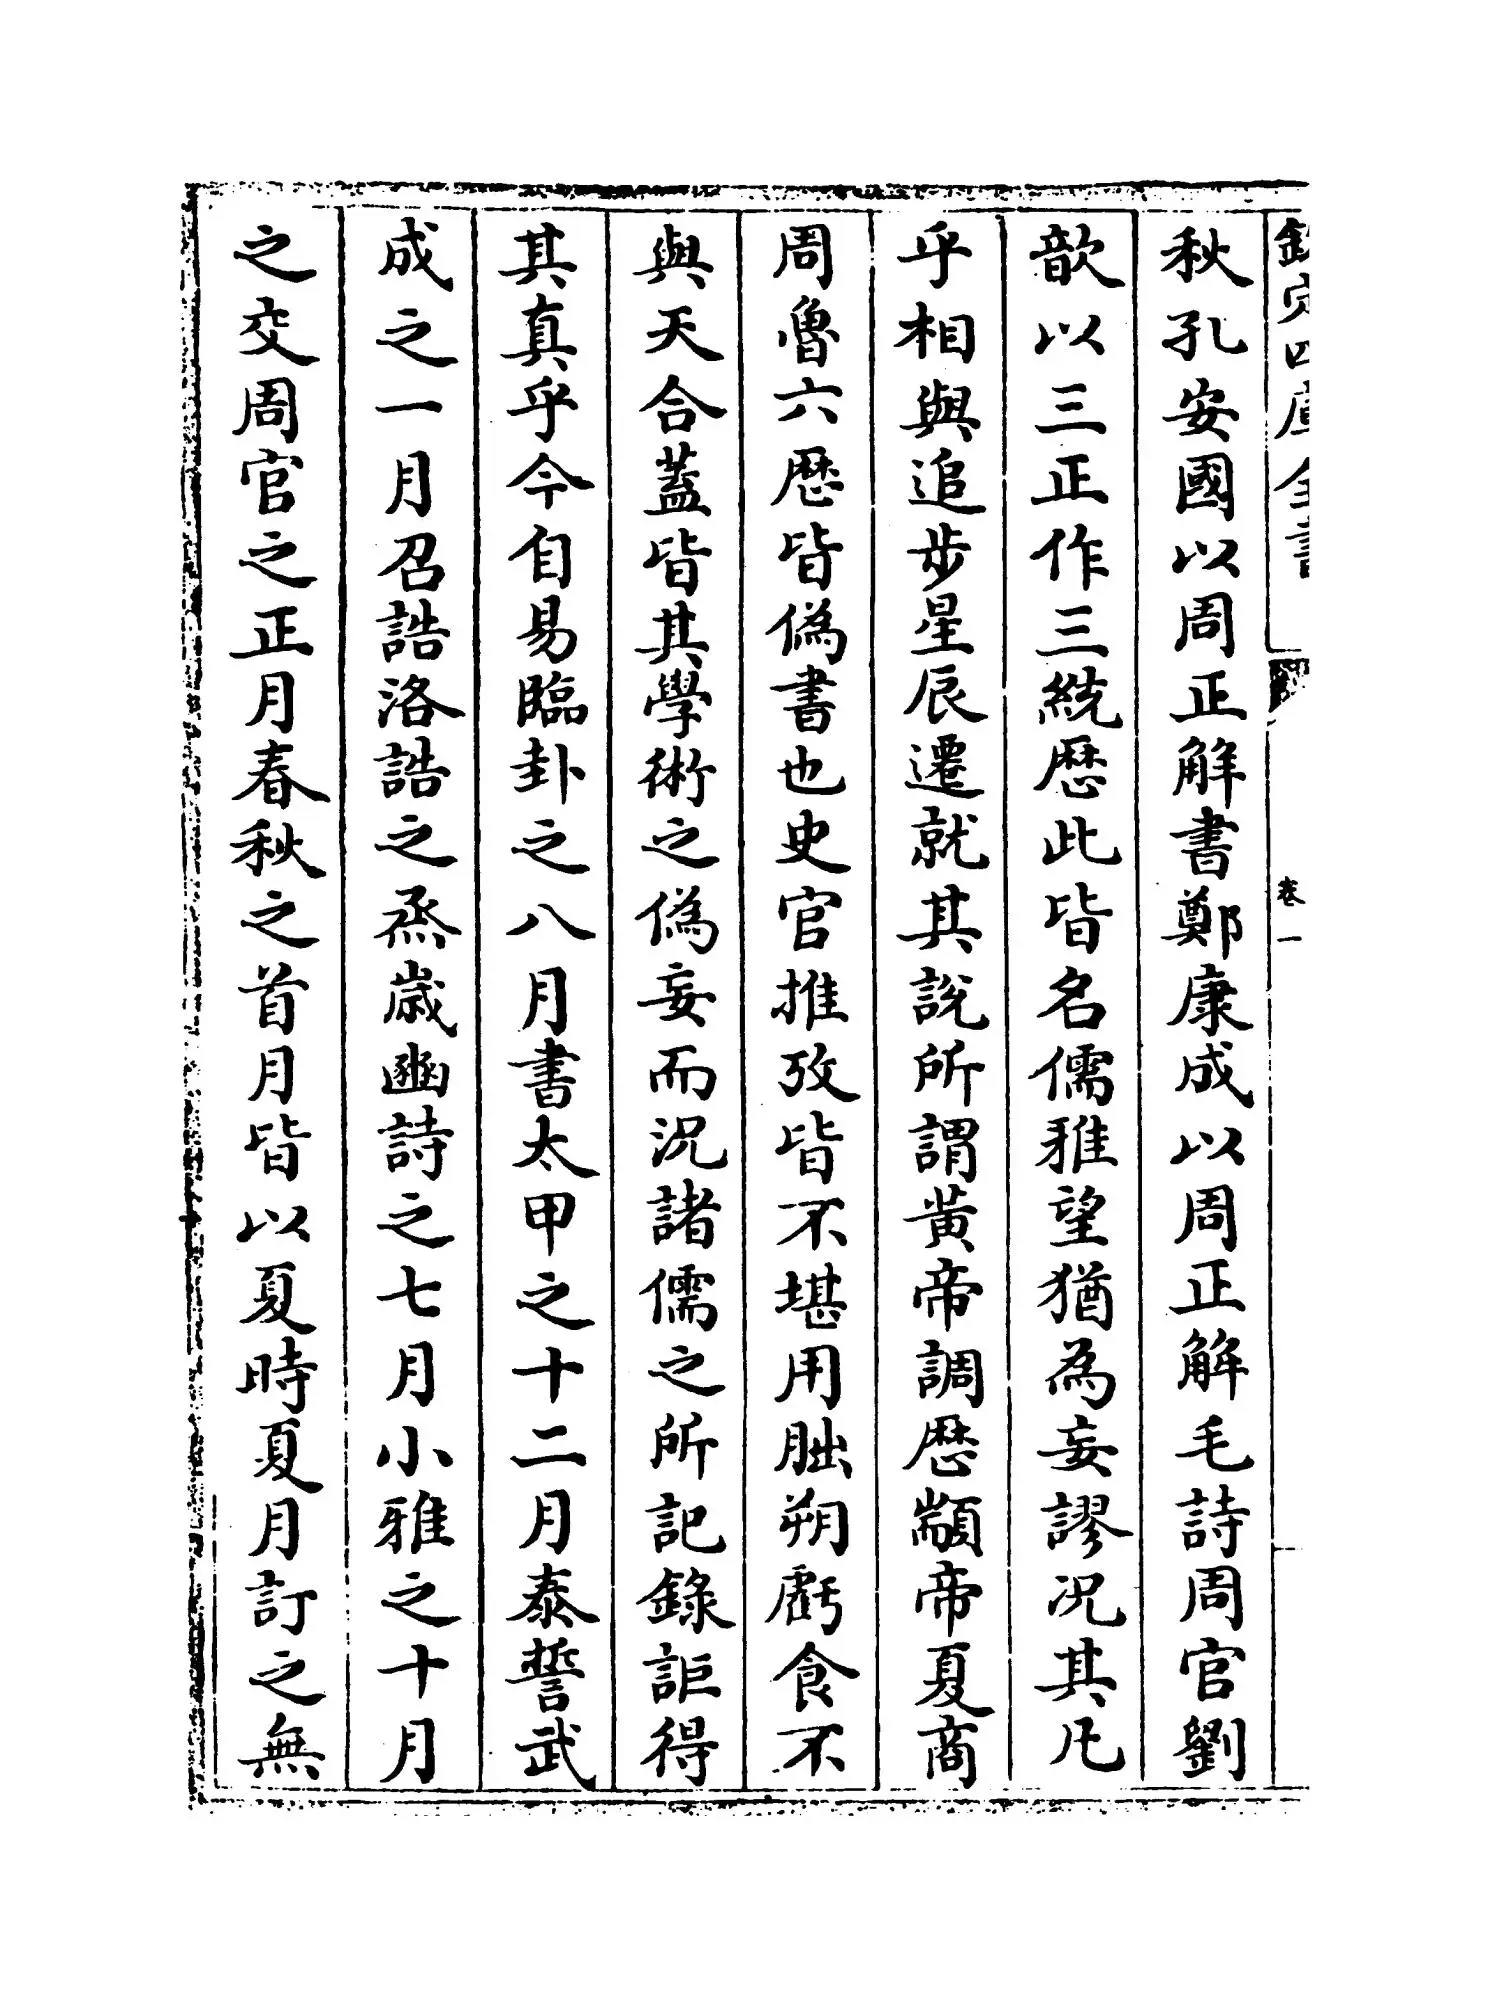 欽定四庫全書
卷一
秋孔安國以周正解書鄭康成以周正解毛詩周官劉
歆以三正作三統厯此皆名儒雅望猶為妄謬況其凡
乎相與追步星辰遷就其說所謂黄帝調厯顓帝夏商
周魯六厯皆偽書也史官推攷皆不堪用朏朔虧食不
與天合蓋皆其學術之偽妄而況諸儒之所記錄詎得
其真乎今自易臨卦之八月書太甲之十二月泰誓武
成之一月召誥洛誥之烝歲豳詩之七月小雅之十月
之交周官之正月春秋之首月皆以夏時夏月訂之無